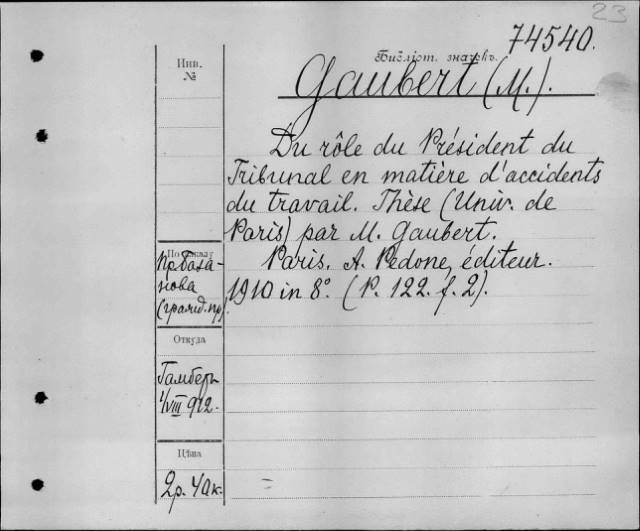 23
74540.
Инв.
№
Библіот. значекъ.
Gaubert (M.).
Du rôle du Président du
Tribunal en matière d'accidents
du travail. Thèse (Univ. de
Paris) par M. Gaubert.
Paris. A. Pedone, éditeur.
1910 in 8°. (P. 122. f. 2).
По
(гражд. пр).
Откуда
1/VIII 912.
Цѣна
2р. 40к.